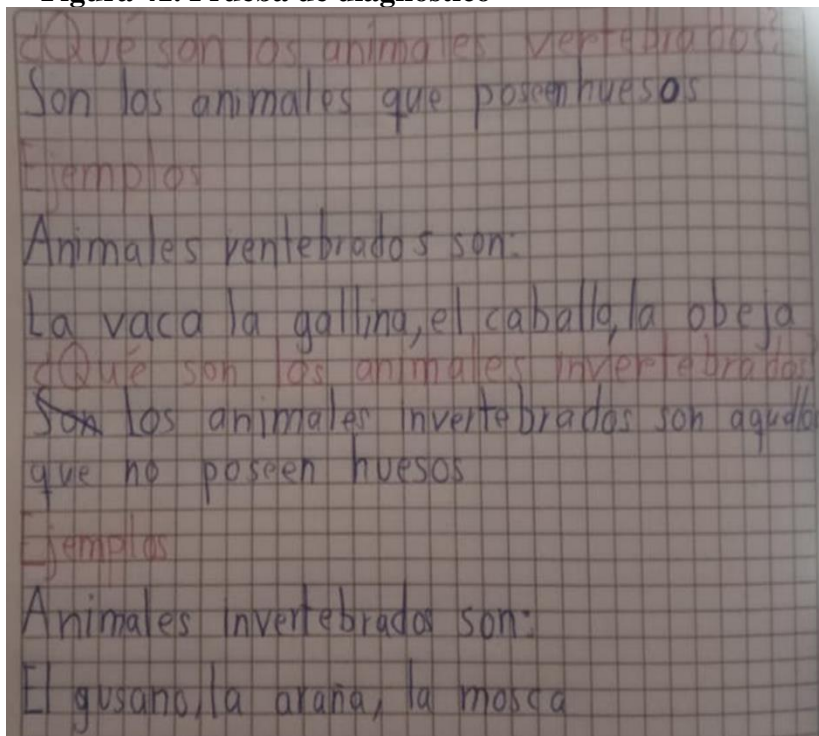 ¿Qué son los animales vertebrados?
Son los animales que poseen huesos
Ejemplos
Animales ventebrados son:
La vaca la gallina, el caballo, la obeja
¿Qué son los animales invertebrados
Son los animales invertebrados son aquello
que no poseen huesos
Ejemplos
Animales invertebrados son:
El gusano, la araña, la mosca